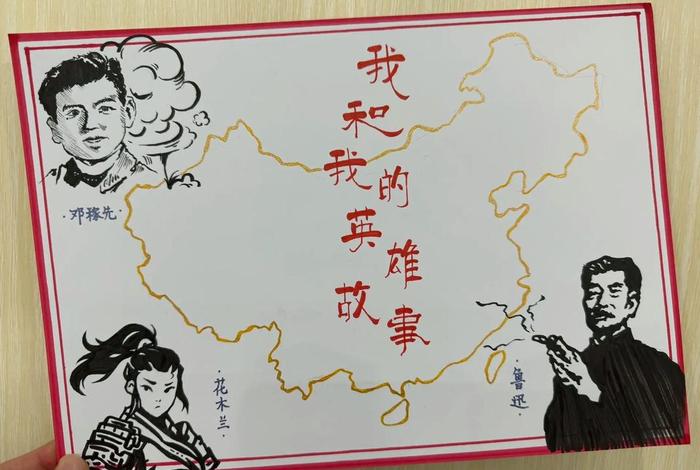 我和我的英雄故事
·邓稼先·
·花木兰·
·鲁迅·